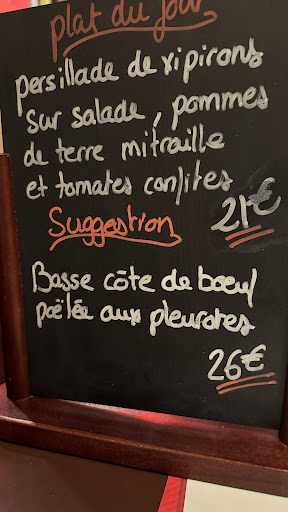 plat du jour
persillade de xipirons
sur salade, pommes
de terre mitraille
et tomates confites
21€
Suggestion
Basse côte de bœuf
poëlée aux pleurotes
26€